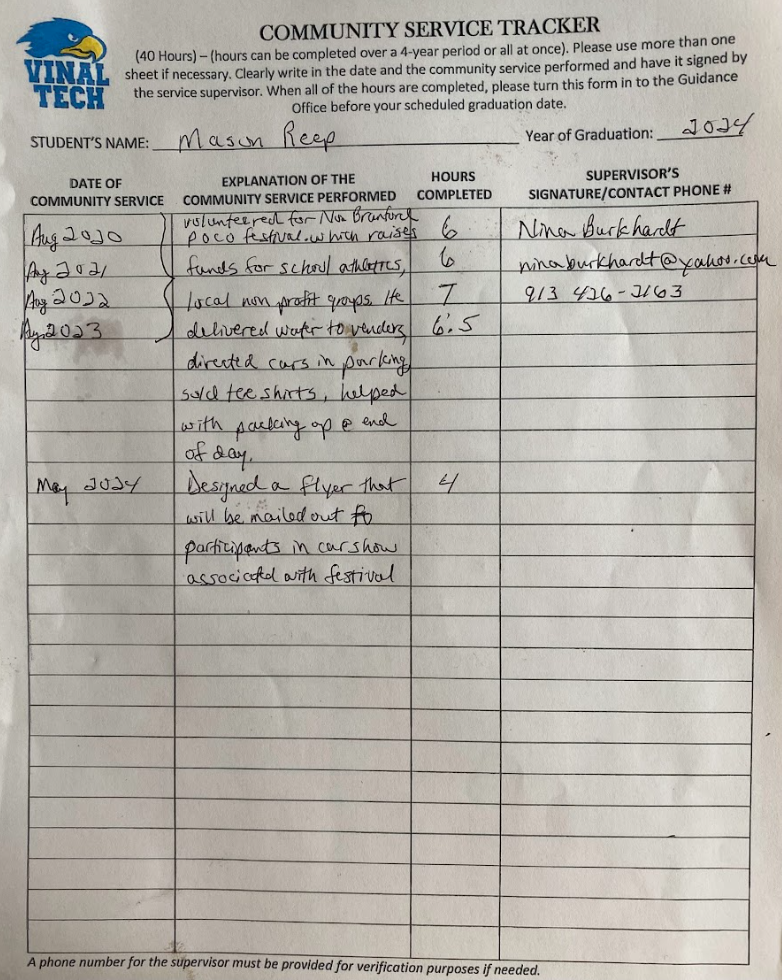 VINAL
TECH
COMMUNITY SERVICE TRACKER
(40 Hours) – (hours can be completed over a 4-year period or all at once). Please use more than one
sheet if necessary. Clearly write in the date and the community service performed and have it signed by
the service supervisor. When all of the hours are completed, please turn this form in to the Guidance
Office before your scheduled graduation date.
STUDENT'S NAME: Mason Reep Year of Graduation: 2024
DATE OF COMMUNITY SERVICE
EXPLANATION OF THE COMMUNITY SERVICE PERFORMED
HOURS COMPLETED
SUPERVISOR'S SIGNATURE/CONTACT PHONE #
volunteered for Nor Branford
Aug 2020 poco festival. which raises 6 Nina Burkhardt
Aug 2021 funds for school athletics, 6 ninaburkhardt@yahoo.com
Aug 2022 local non profit groups. He 7 913 426-2163
Aug 2023 delivered water to venders, 6.5
directed cars in parking,
sold tee shirts, helped
with packing up @ end
of day.
May 2024 Designed a flyer that 4
will be mailed out to
participants in car show
associated with festival
A phone number for the supervisor must be provided for verification purposes if needed.